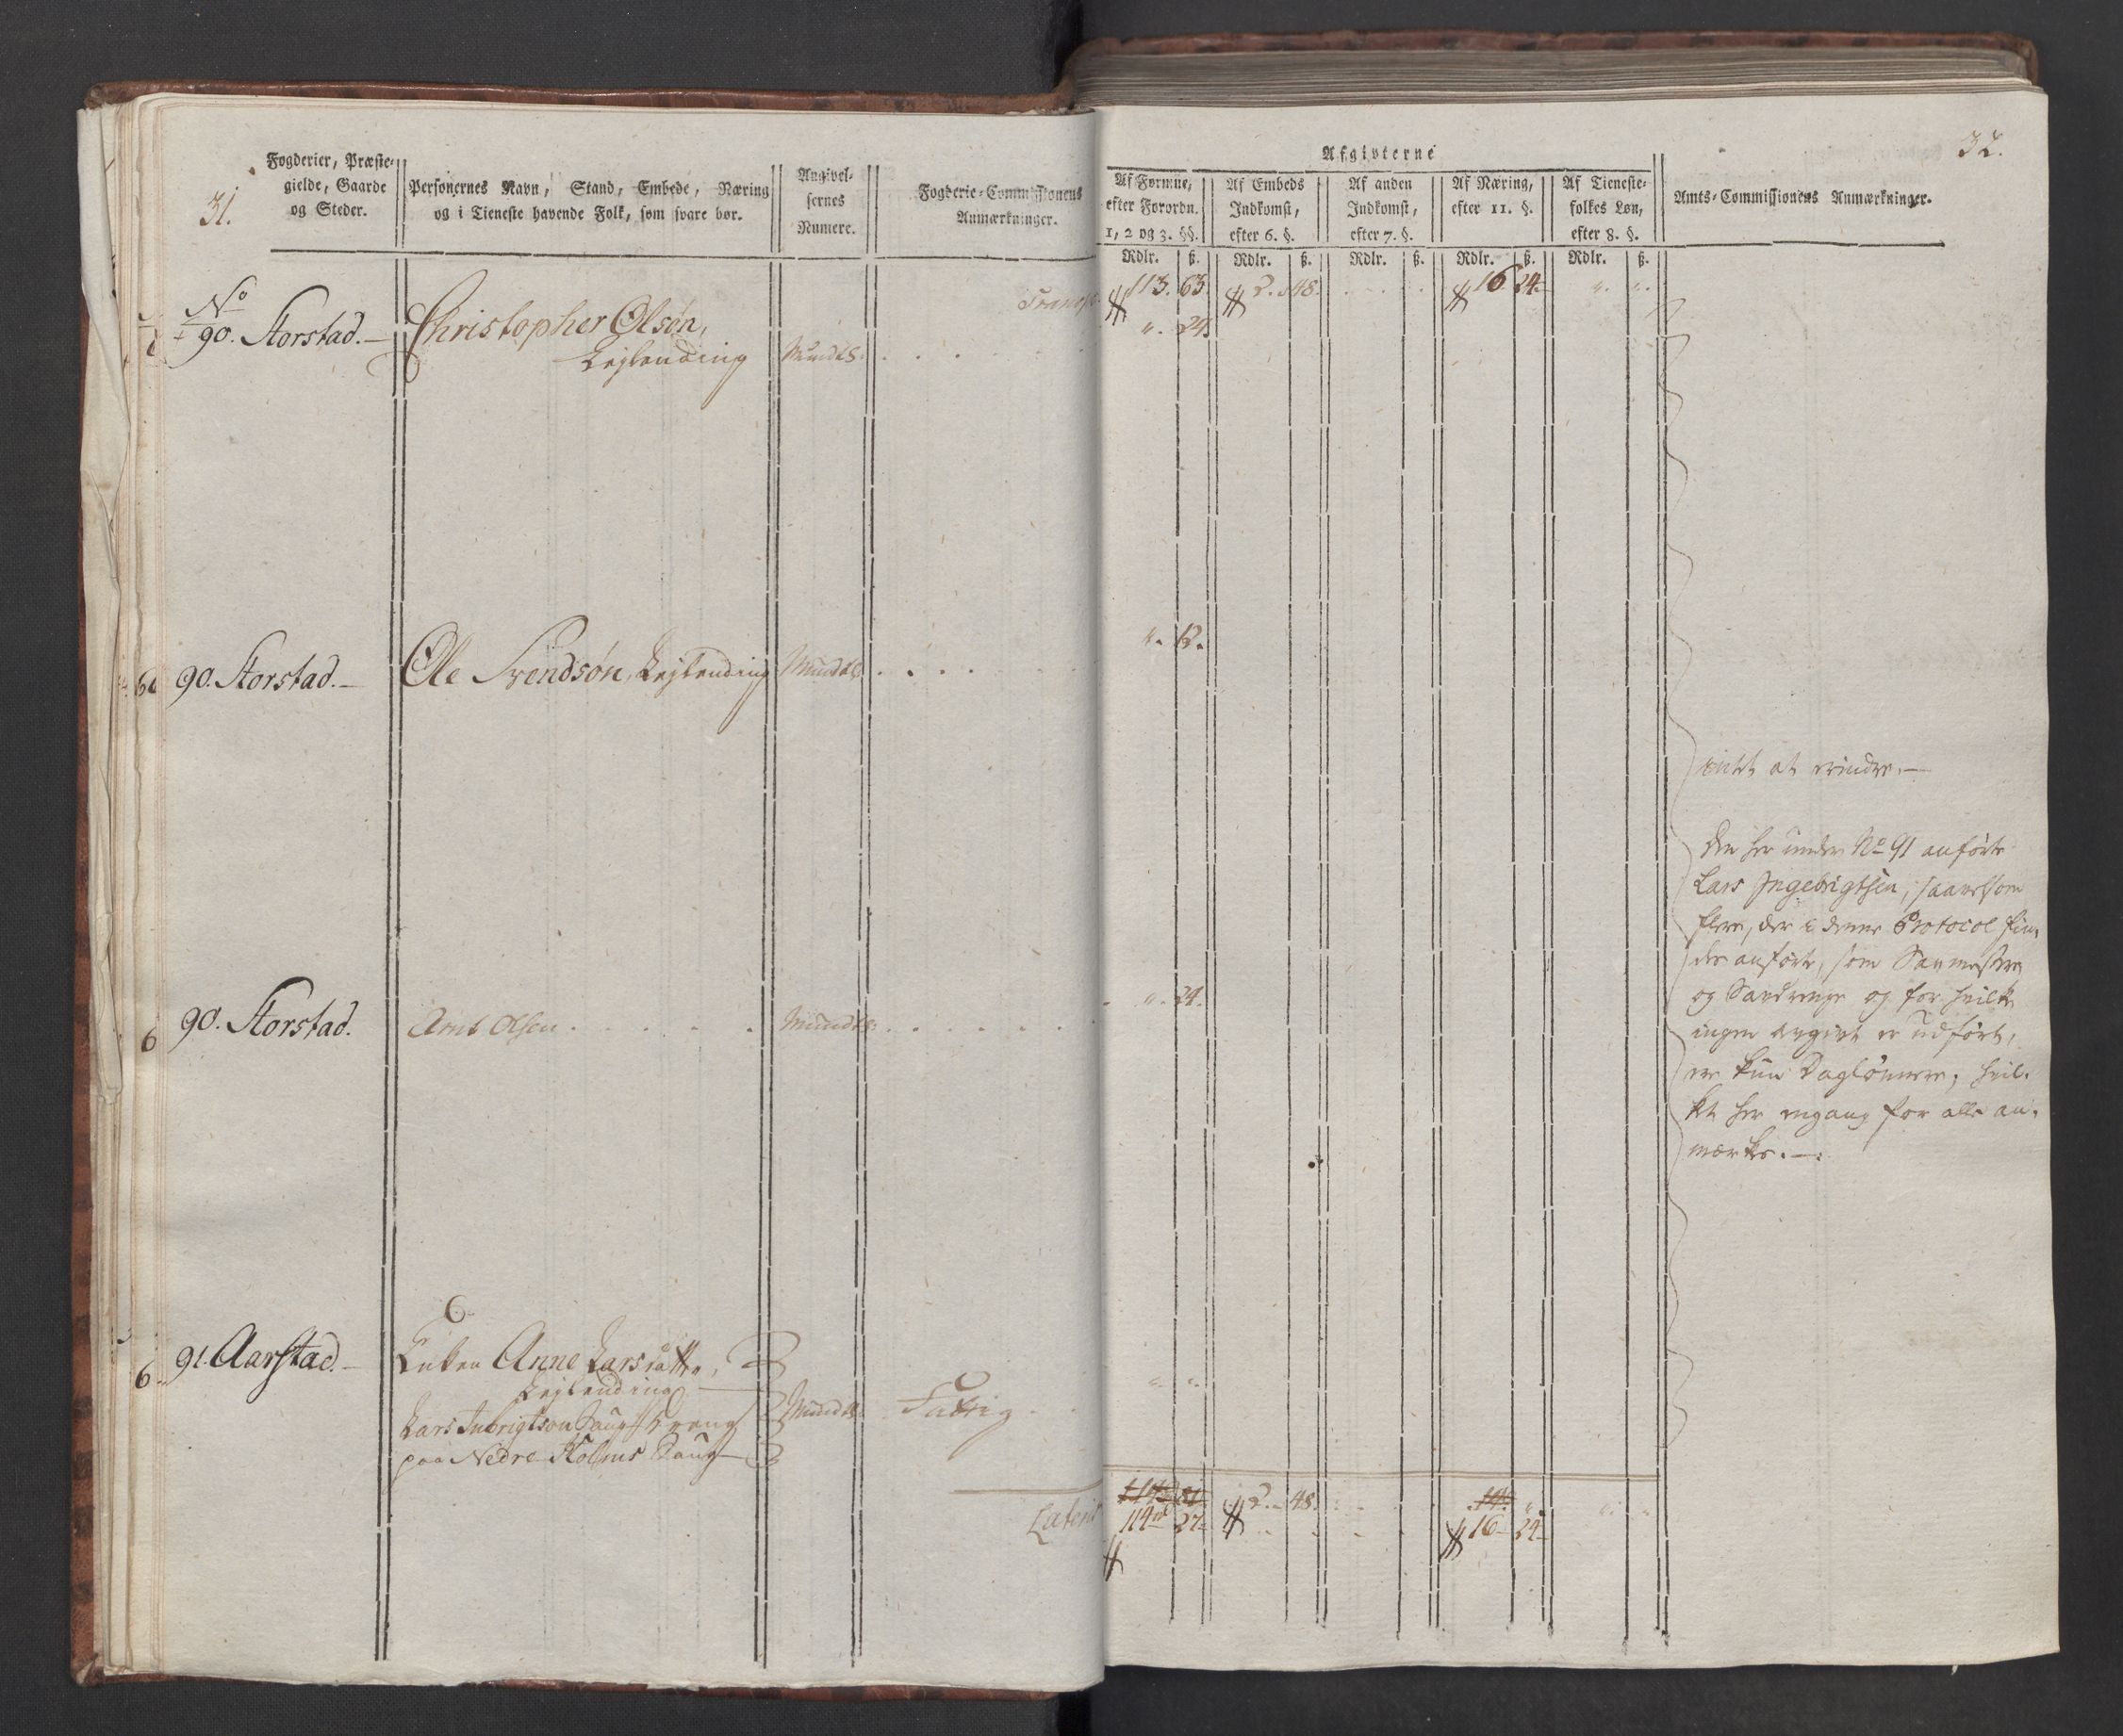 31.
Fogderier, Præste-
gielde, Gaarde
og Steder.
Personernes Navn, Stand, Embede, Næring
og i Tieneste havende Folk, som svare bør.
Angivel-
sernes
Numere.
Fogderie-Commissionens
Anmærkninger.
Transp
No
90. Storstad.—
Christopher Olsøn,
Lejlending
Mundtl:
90. Storstad.—
Ole Svendsøn, Lejlending
Mundtl:
90. Storstad.
Arnt Olsen
Mundtl:
91. Aarstad.—
Enken Anne Larsdatter,
Lejlending
Lars Inbrigtson Saug Dreng
paa Nedre Holms Saug
Mundtl:
Fattig
Lateris
32.
Afgivterne
Af Formue,
efter Forordn.
1, 2 og 3. §§.
Af Embeds
Indkomst,
efter 6. §.
Af anden
Indkomst,
efter 7. §.
Af Næring,
efter 11. §.
Af Tieneste-
folkes Løn,
efter 8. §.
Amts-Commissionens Anmærkninger.
Rdlr. ß. Rdlr. ß. Rdlr. ß. Rdlr. ß. Rdlr. ß.
113. 63. 2. 48. 16 24.
". 24.
". 12.
intet at erindre.—
Den her under No 91 anførte
Lars Ingebrigtsen, saavelsom
flere, der i denne Protocol fin-
des anførte, som Savmestere
og Savdrenge og for hvilke
ingen avgivt er udført,
ere kun Daglönnere; hvil-
ket her engang for alle an-
mærkes.—
". 24.
" "
2. 48.
114 27. 16 24